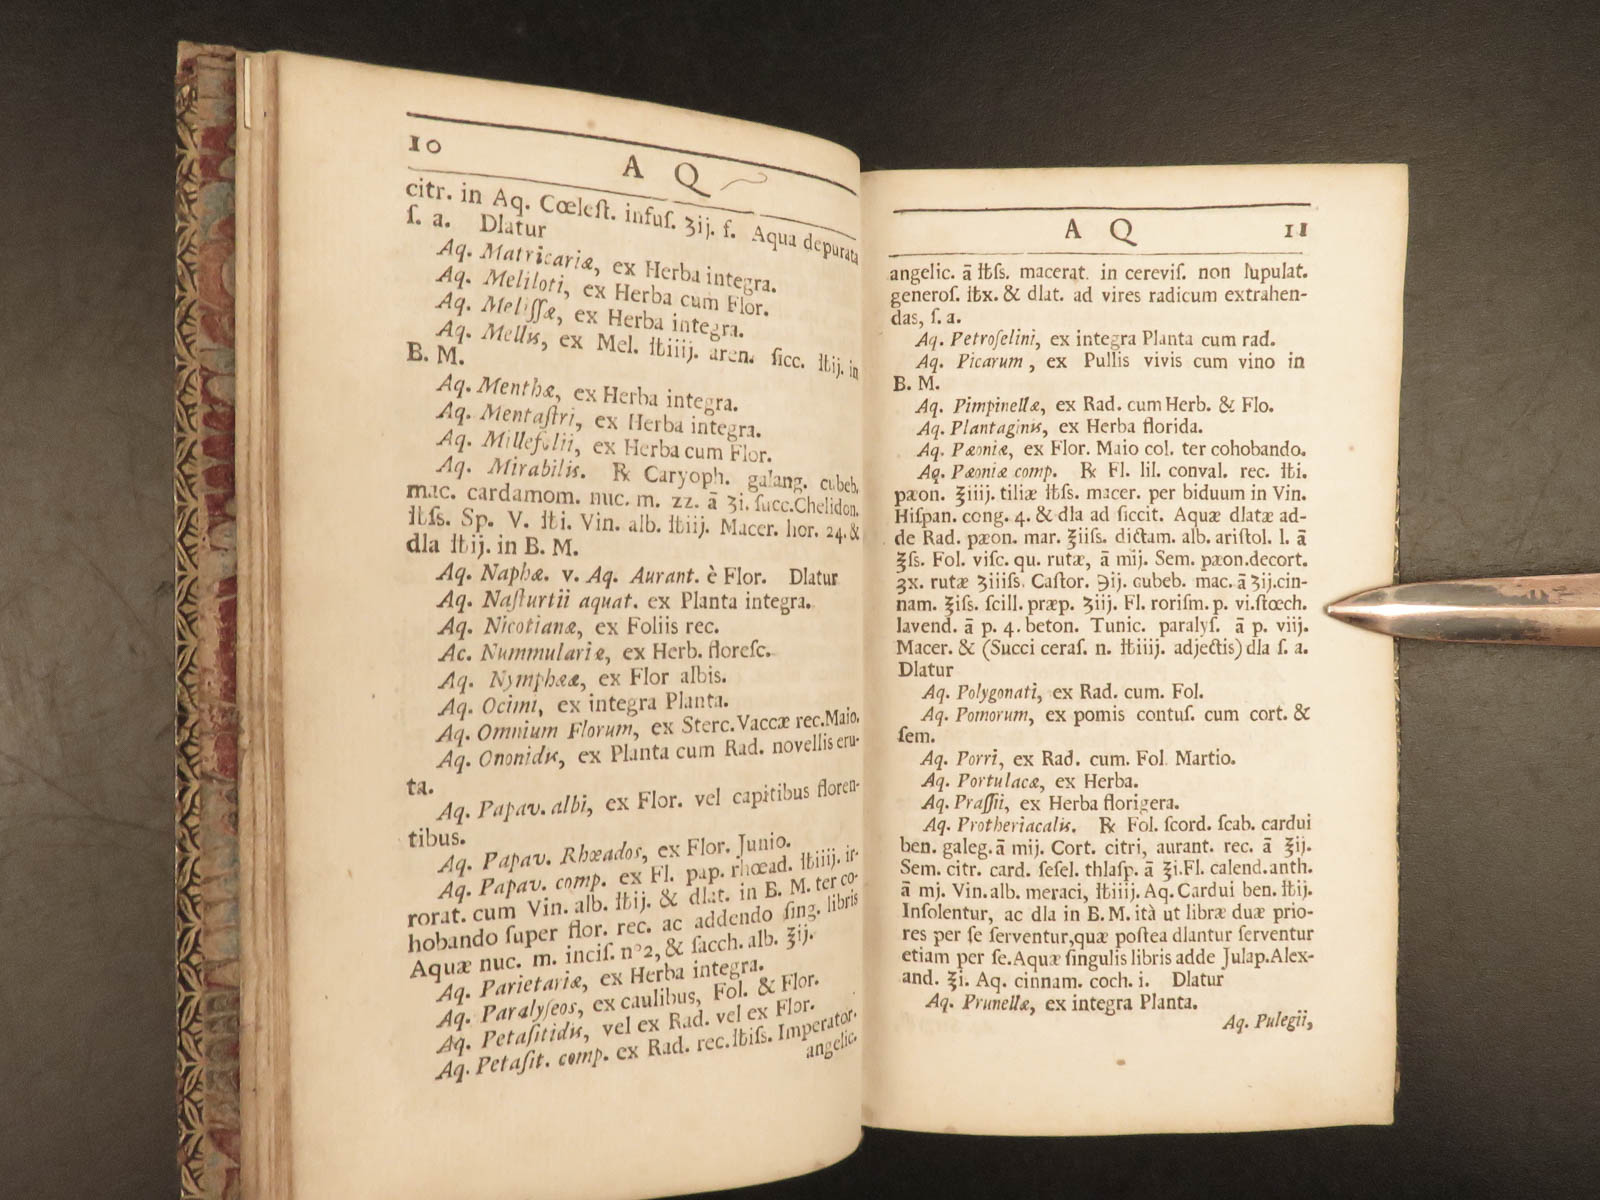 10
A Q
citr. in Aq. Cœleſt. infuſ. ʒij. f. Aqua depurata
ſ. a. Dlatur
Aq. Matricariæ, ex Herba integra.
Aq. Meliloti, ex Herba cum Flor.
Aq. Meliſſæ, ex Herba integra.
Aq. Mellis, ex Mel. ℔iiij. aren. ſicc. ℔ij. in
B. M.
Aq. Menthæ, ex Herba integra.
Aq. Mentaſtri, ex Herba integra.
Aq. Millefolii, ex Herba cum Flor.
Aq. Mirabilis. ℞ Caryoph. galang. cubeb.
mac. cardamom. nuc. m. zz. ā ʒi. ſucc. Chelidon.
℔ſs. Sp. V. ℔i. Vin. alb. ℔iij. Macer. hor. 24. &
dla ℔ij. in B. M.
Aq. Naphæ. v. Aq. Aurant. è Flor. Dlatur
Aq. Naſturtii aquat. ex Planta integra.
Aq. Nicotianæ, ex Foliis rec.
Ac. Nummulariæ, ex Herb. floreſc.
Aq. Nymphææ, ex Flor albis.
Aq. Ocimi, ex integra Planta.
Aq. Omnium Florum, ex Sterc. Vaccæ rec. Maio.
Aq. Ononidis, ex Planta cum Rad. novellis eru-
ta.
Aq. Papav. albi, ex Flor. vel capitibus floren-
tibus.
Aq. Papav. Rhœados, ex Flor. Junio.
Aq. Papav. comp. ex Fl. pap. rhœad. ℔iiij. ir-
rorat. cum Vin. alb. ℔ij. & dlat. in B. M. ter co-
hobando ſuper flor. rec. ac addendo ſing. libris
Aquæ nuc. m. inciſ. nº2, & ſacch. alb. ℥ij.
Aq. Parietariæ, ex Herba integra.
Aq. Paralyſeos, ex caulibus, Fol. & Flor.
Aq. Petaſitidis, vel ex Rad. vel ex Flor.
Aq. Petaſit. comp. ex Rad. rec. ℔iſs. Imperator.
angelic.
A Q
11
angelic. ā ℔ſs. macerat. in cereviſ. non lupulat.
generoſ. ℔x. & dlat. ad vires radicum extrahen-
das, ſ. a.
Aq. Petroſelini, ex integra Planta cum rad.
Aq. Picarum, ex Pullis vivis cum vino in
B. M.
Aq. Pimpinellæ, ex Rad. cum Herb. & Flo.
Aq. Plantaginis, ex Herba florida.
Aq. Pæoniæ, ex Flor. Maio col. ter cohobando.
Aq. Pæoniæ comp. ℞ Fl. lil. conval. rec. ℔i.
pæon. ℥iiij. tiliæ ℔ſs. macer. per biduum in Vin.
Hiſpan. cong. 4. & dla ad ſiccit. Aquæ dlatæ ad-
de Rad. pæon. mar. ℥iiſs. dictam. alb. ariſtol. l. ā
℥ſs. Fol. viſc. qu. rutæ, ā mij. Sem. pæon. decort.
ʒx. rutæ ʒiiiſs. Caſtor. ℈ij. cubeb. mac. ā ʒij. cin-
nam. ℥iſs. ſcill. præp. ʒiij. Fl. roriſm. p. vi. ſtœch.
lavend. ā p. 4. beton. Tunic. paralyſ. ā p. viij.
Macer. & (Succi ceraſ. n. ℔iiij. adjectis) dla ſ. a.
Dlatur
Aq. Polygonati, ex Rad. cum. Fol.
Aq. Pomorum, ex pomis contuſ. cum cort. &
ſem.
Aq. Porri, ex Rad. cum. Fol. Martio.
Aq. Portulacæ, ex Herba.
Aq. Praſſii, ex Herba florigera.
Aq. Protheriacalis. ℞ Fol. ſcord. ſcab. cardui
ben. galeg. ā mij. Cort. citri, aurant. rec. ā ℥ij.
Sem. citr. card. ſeſel. thlaſp. ā ℥i. Fl. calend. anth.
ā mj. Vin. alb. meraci, ℔iiij. Aq. Cardui ben. ℔ij.
Inſolentur, ac dla in B. M. ità ut libræ duæ prio-
res per ſe ſerventur, quæ poſtea dlantur ſerventur
etiam per ſe. Aquæ ſingulis libris adde Julap. Alex-
and. ℥i. Aq. cinnam. coch. i. Dlatur
Aq. Prunellæ, ex integra Planta.
Aq. Pulegii,